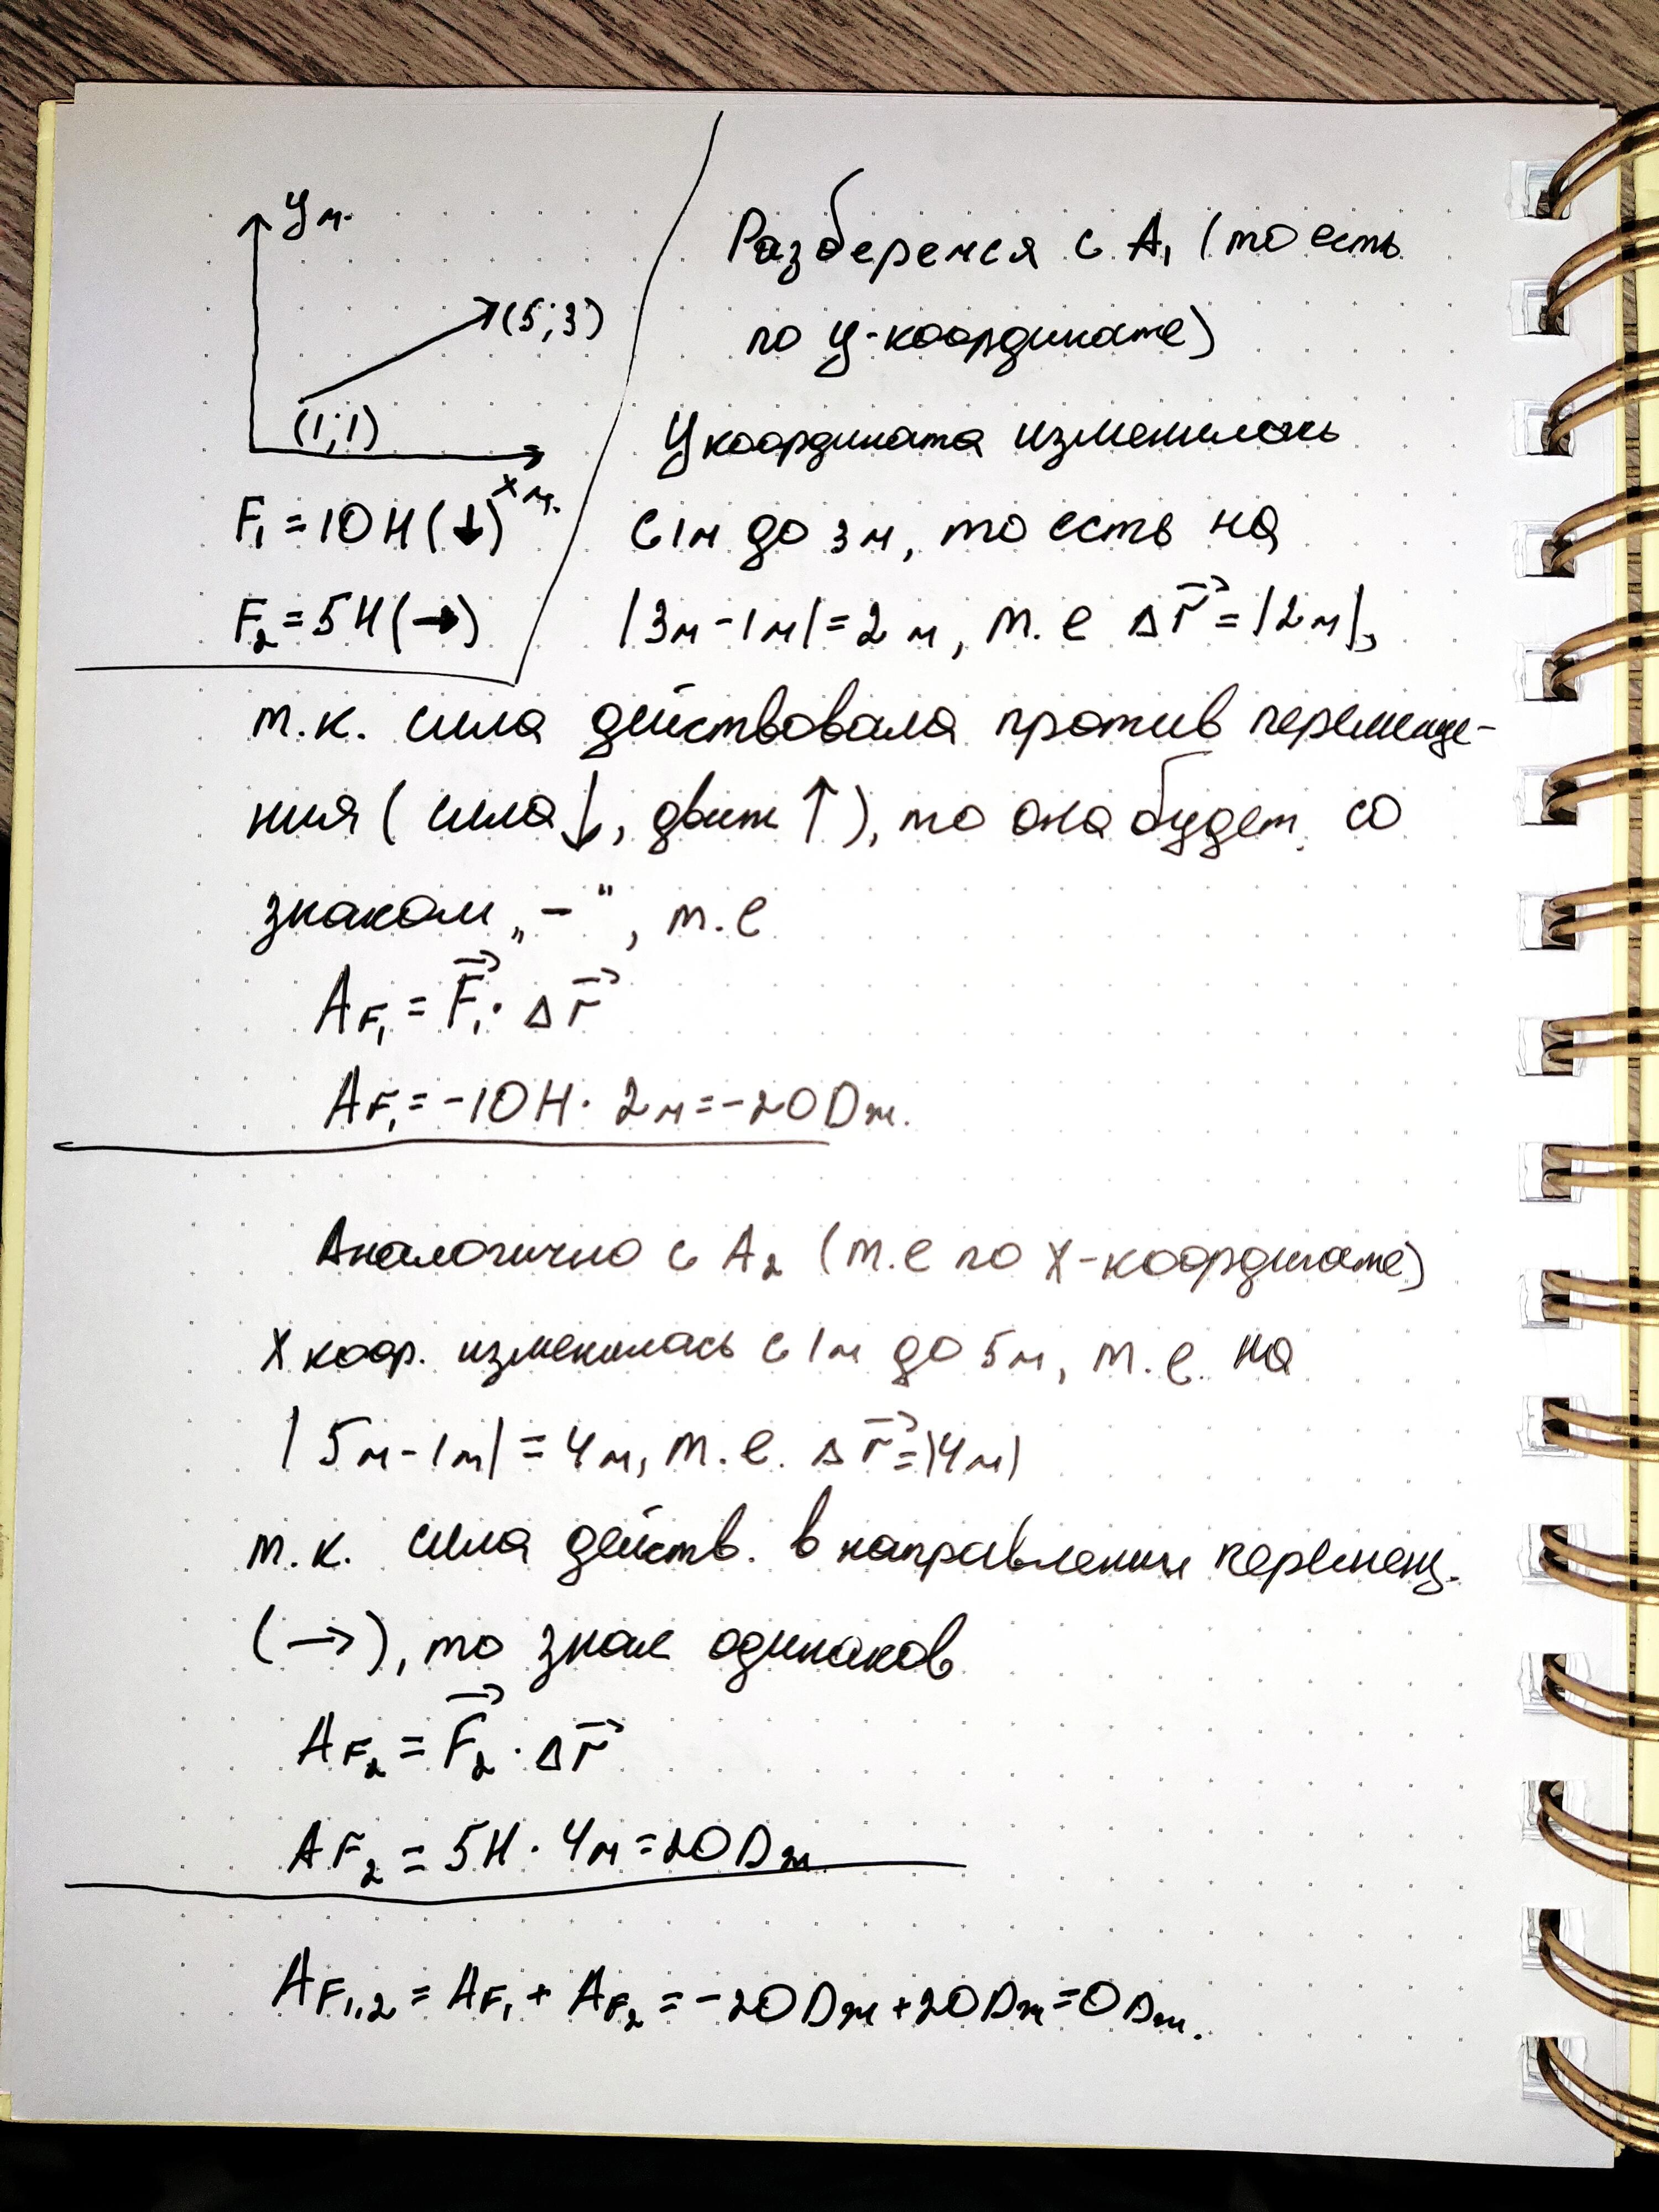 y м.
(5; 3)
(1; 1)
x м.
F₁ = 10 Н (↓)
F₂ = 5 Н (→)
Разберемся с A₁ (то есть
по y-координате)
Y координата изменилась
с 1м до 3м, то есть на
|3м - 1м| = 2м, т.е Δr⃗ = |2м|,
т.к. сила действовала против перемеще-
ния ( сила ↓, движ ↑ ), то она будет со
знаком „ - “, т.е
A_F₁ = F⃗₁ · Δr⃗
A_F₁ = -10Н · 2м = -20 Дж.
Аналогично с A₂ (т.е по X-координате)
X коор. изменилась с 1м до 5м, т.е. на
| 5м - 1м| = 4м, т.е. Δr⃗ = |4м|
т.к. сила действ. в направлении перемещ.
(→), то знак одинаков
A_F₂ = F⃗₂ · Δr⃗
A_F₂ = 5Н · 4м = 20 Дж
A_F₁,₂ = A_F₁ + A_F₂ = -20 Дж + 20 Дж = 0 Дж.